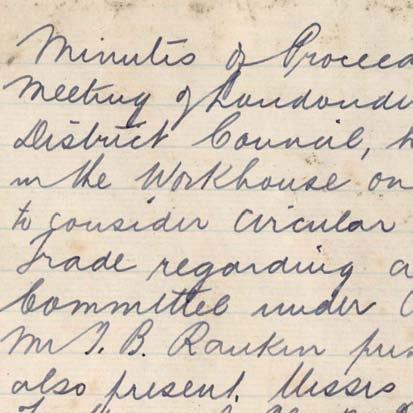 Minutes of Proceed
Meeting of Londonde
District Council, h
in the Workhouse on
to consider Circular
Trade regarding a
Committee under
Mr J. B. Rankin pres
also present. Messrs